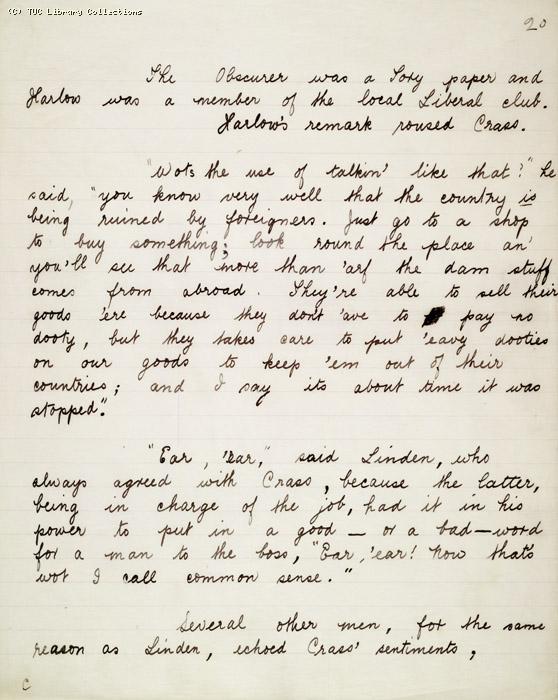 (C) TUC Library Collections
20
The Obscurer was a Tory paper and
Harlow was a member of the local Liberal club.
Harlow's remark roused Crass.
"Wot's the use of talkin' like that?" he
said, "you know very well that the country is
being ruined by foreigners. Just go to a shop
to buy something; look round the place an'
you'll see that more than 'arf the dam stuff
comes from abroad. They're able to sell their
goods 'ere because they don't 'ave to pay no
dooty, but they takes care to put 'eavy dooties
on our goods to keep 'em out of their
countries; and I say its about time it was
stopped".
"Ear, 'ear," said Linden, who
always agreed with Crass, because the latter,
being in charge of the job, had it in his
power to put in a good – or a bad – word
for a man to the boss, "Ear, 'ear! Now that's
wot I call common sense."
Several other men, for the same
reason as Linden, echoed Crass' sentiments,
C